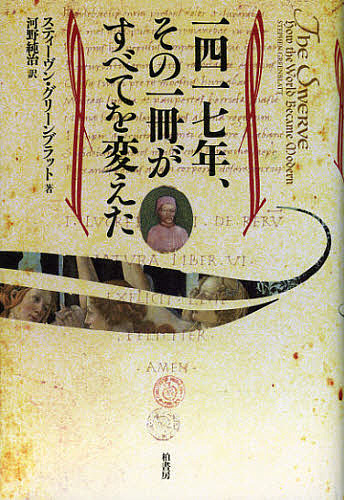 一四一七年、
その一冊が
すべてを変えた
スティーヴン・グリーンブラット 著
河野純治 訳
The Swerve
How the World Became Modern
STEPHEN GREENBLATT
DE RERV
NATVRA LIBER VI
EXPLICIT
FELICITER
·AMEN·
柏書房